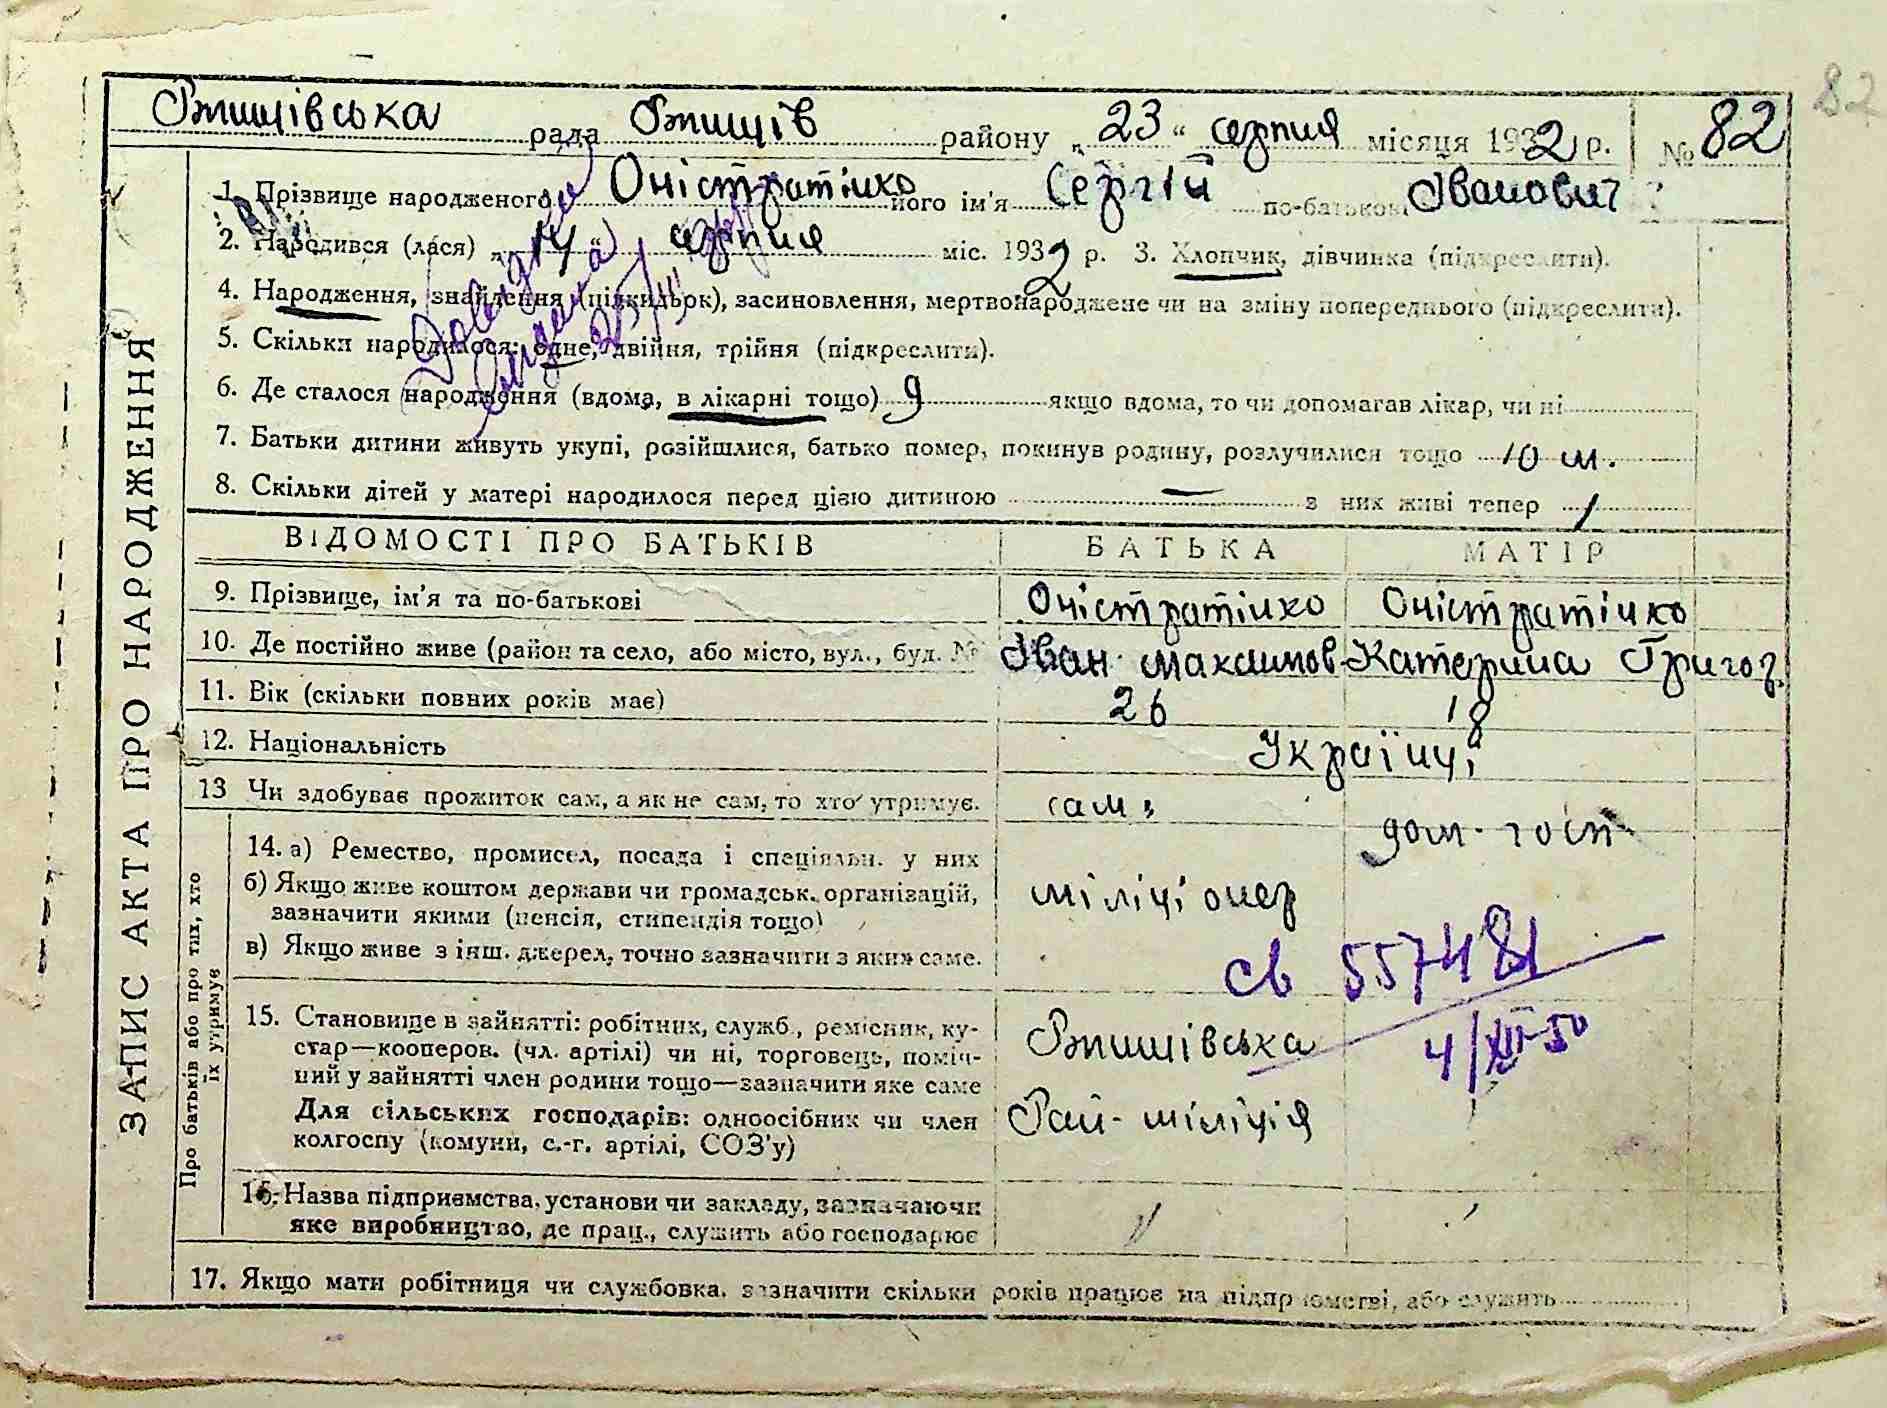 82
Ржищівська рада Ржищів району „ 23 “ серпня місяця 1932 р. № 82
ЗАПИС АКТА ПРО НАРОДЖЕННЯ
1. Прізвище народженого Оністратінко його ім'я Сергій по-батькові Іванович
2. Народився (лася) „ 14 “ серпня міс. 1932 р. 3. Хлопчик, дівчинка (підкреслити).
4. Народження, знайдення (підкидьок), засиновлення, мертвонароджене чи на зміну попереднього (підкреслити).
5. Скільки народилося: одне, двійня, трійня (підкреслити).
6. Де сталося народження (вдома, в лікарні тощо) 9 якщо вдома, то чи допомагав лікар, чи ні
7. Батьки дитини живуть укупі, розійшлися, батько помер, покинув родину, розлучилися тощо 10 м.
8. Скільки дітей у матері народилося перед цією дитиною — з них живі тепер 1
Довідка видана 25/
ВІДОМОСТІ ПРО БАТЬКІВ БАТЬКА МАТІР
9. Прізвище, ім'я та по-батькові Оністратінко Оністратінко
10. Де постійно живе (район та село, або місто, вул., буд. № Іван Максимов Катерина Григор.
11. Вік (скільки повних років має) 26 18
12. Національність Українці
13 Чи здобуває прожиток сам, а як не сам, то хто утримує. сам дом. госп
Про батьків або про тих, хто їх утримує
14. а) Ремество, промисел, посада і спеціяльн. у них
б) Якщо живе коштом держави чи громадськ. організацій, міліціонер
зазначити якими (пенсія, стипендія тощо)
в) Якщо живе з інш. джерел, точно зазначити з яких саме.
св 557481
4/XII-50
15. Становище в зайнятті: робітник, служб., ремісник, ку-
стар—кооперов. (чл. артілі) чи ні, торговець, поміч- Ржищівська
ний у зайнятті член родини тощо—зазначити яке саме
Для сільських господарів: одноосібник чи член Рай-міліція
колгоспу (комуни, с.-г. артілі, СОЗ'у)
16. Назва підприємства, установи чи закладу, зазначаючи
яке виробництво, де прац., служить або господарює
17. Якщо мати робітниця чи службовка, зазначити скільки років працює на підприємстві, або служить